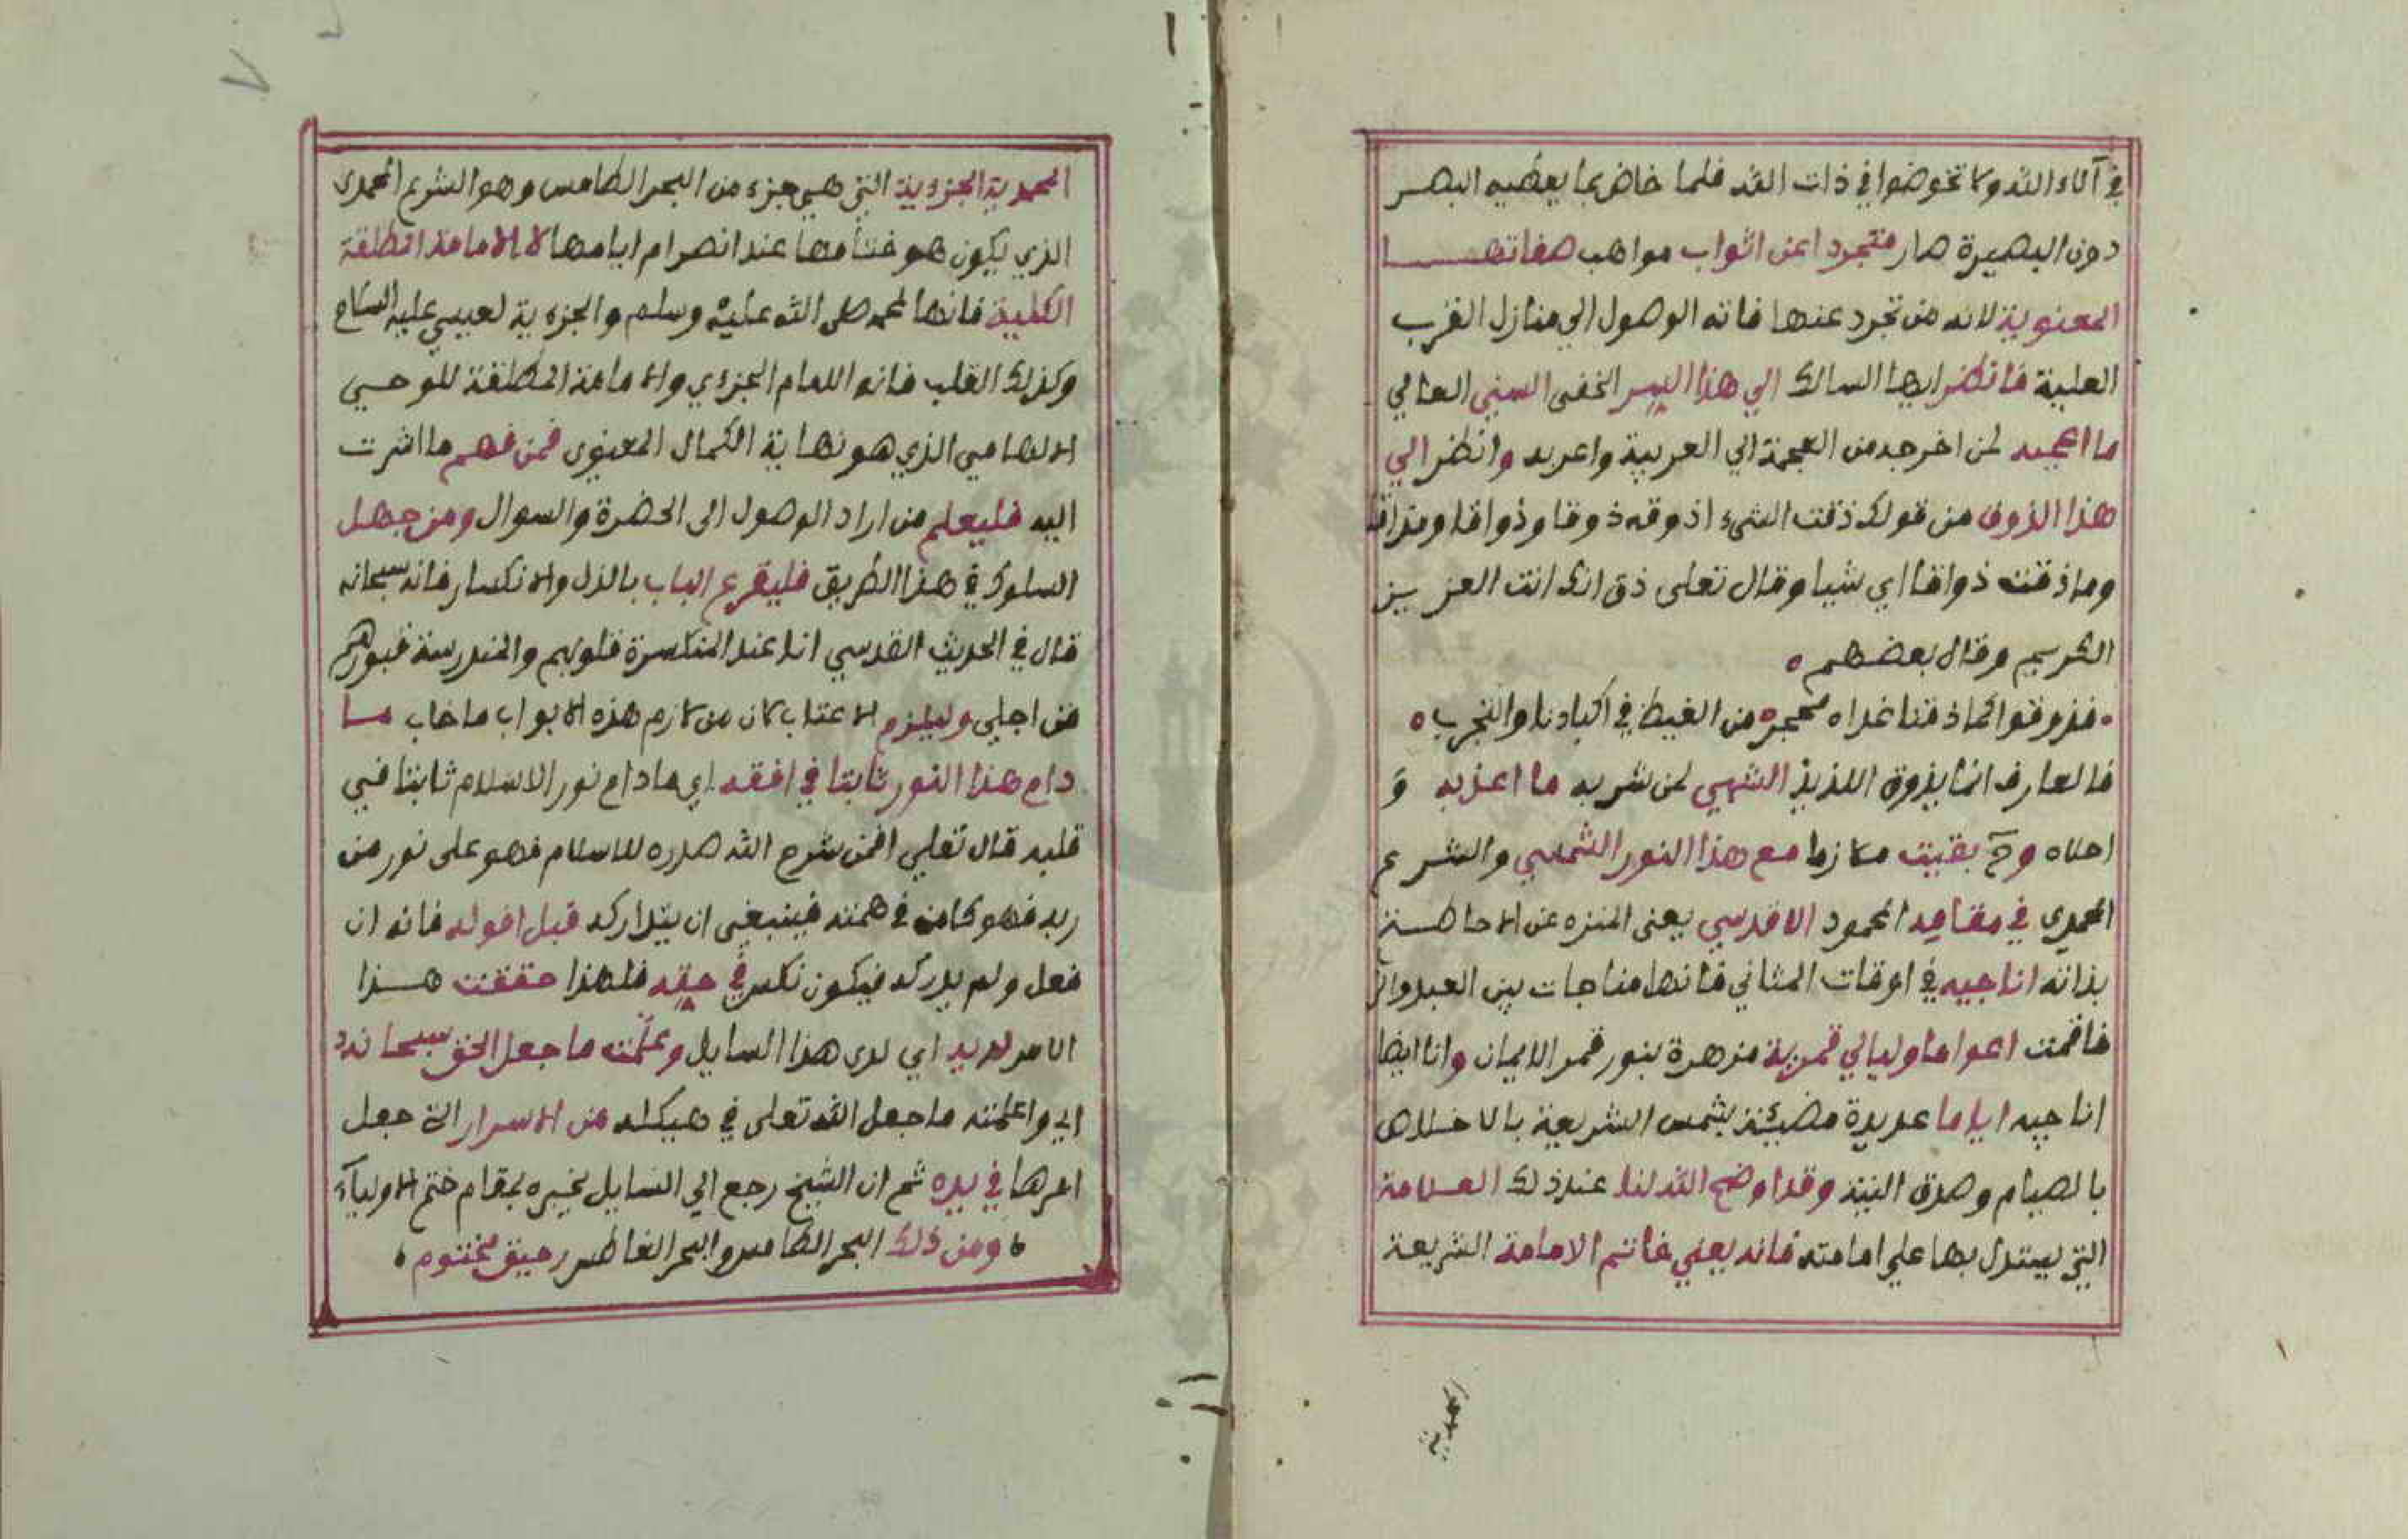 في آلاء الله ولا تخوضوا في ذات الله فلما خاض بما يعطيه البصر
دون البصيرة صار متجردا عن اثواب مواهب صفاتها
المعنوية لانه من تجرد عنها فاته الوصول الى منازل القرب
العلية فانظر ايها السالك الي هذا السر الخفى السني العالي
ما اعجبه لمن اخرجه من العجمة الي العربية واعربه وانظر الي
هذا الذوق من قولك ذقت الشيء اذوقه ذوقا وذواقا ومذاقا
وما ذقت ذواقا اي شيا وقال تعلى ذق انك انت العزيز
الكريم وقال بعضهم ه
فذوقوا كما ذقنا غداه محجره من الغيظ في اكبادنا والتحرب ه
فالعارف انما يذوق اللذيذ الشهي لمن شربه ما اعذبه و
احلاه وح بقيت ملازما مع هذا النور الشمسي والشرع
المحمدى في مقامه المحمود الاقدسي يعنى المنزه عن الاحاطة
بذاته اناجيه في اوقات المثاني فانها مناجات بين العبد والر
فاقمت اعواما وليالي قمرية مزهرة بنور قمر الايمان وانا ايضا
اناجيه اياما عديدة مضيئة بشمس الشريعة بالاخلاص
بالصيام وصدق النية وقد اوضح الله لنا عند ذلك العلامة
التي يستدل بها علي امامته فانه يعني خاتم الامامة الشريعة
المحمدية
المحمدية الجزءية التي هي جزء من البحر الطامس وهو الشرع المحمدى
الذي يكون هو ختامها عند انصرام ايامها لا الامامة المطلقة
الكلية فانها لمحمد صلى الله عليه وسلم والجزءية لعيسي عليه السلام
وكذلك القلب فانه الامام الجزءي والامامة المطلقة للوحي
الالهامي الذي هو نهاية الكمال المعنوى فمن فهم ما اشرت
اليه فليعلم من اراد الوصول الى الحضرة والسوال ومن جهل
السلوك في هذا الطريق فليقرع الباب بالذل والانكسار فانه سبحانه
قال في الحديث القدسي انا عند المنكسرة قلوبهم والمندرسة قبورهم
من اجلي وليلزم الاعتاب كان من لازم هذه الابواب ما خاب ما
دام هذا النور ثابتا في افقه اي ما دام نور الاسلام ثابتا في
قلبه قال تعلي افمن شرح الله صدره للاسلام فهو على نور من
ربه فهو كامن في همته فينبغي ان يتداركه قبل افوله فانه ان
فعل ولم يدركه فيكون نكس في حقه فلهذا حققت هذا
الامر لديه اي لدى هذا السايل وعلمت ما جعل الحق سبحانه
اي واعلمته ما جعل الله تعلى في هيكله من الاسرار التي جعل
امرها في يده ثم ان الشيخ رجع الي السايل يخبره بمقام ختم الاوليآء
ومن ذلك البحر الطامس والبحر الغاطس رحيق مختوم
٧